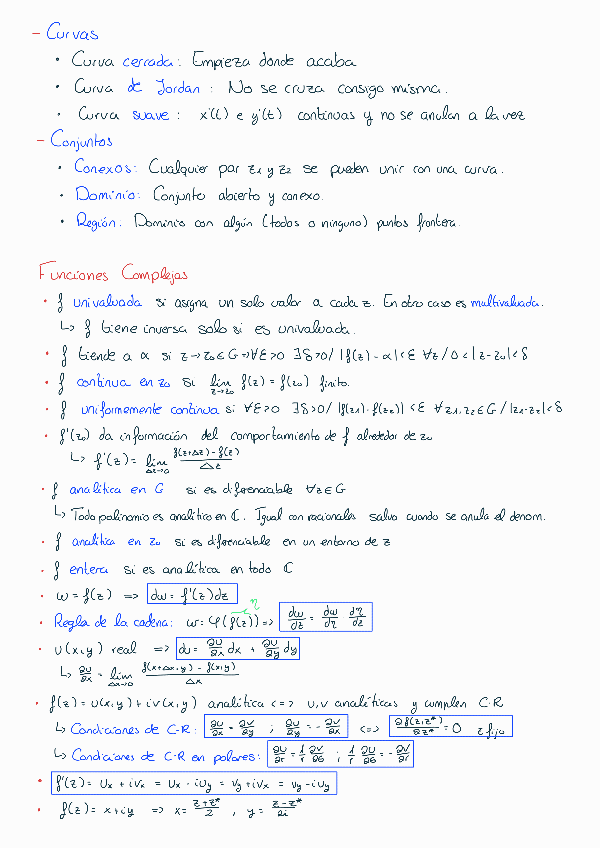 - Curvas
• Curva cerrada: Empieza donde acaba
• Curva de Jordan: No se cruza consigo misma.
• Curva suave: x'(t) e y'(t) continuas y no se anulan a la vez
- Conjuntos
• Conexos: Cualquier par z₁ y z₂ se pueden unir con una curva.
• Dominio: Conjunto abierto y conexo.
• Región: Dominio con algún (todos o ninguno) puntos frontera.
Funciones Complejas
• f univaluada si asigna un solo valor a cada z. En otro caso es multivaluada.
↳ f tiene inversa solo si es univaluada.
• f tiende a α si z→z₀∈G → ∀ε>0 ∃δ>0 / |f(z)-α|<ε ∀z / 0<|z-z₀|<δ
• f continua en z₀ si lim z→z₀ f(z) = f(z₀) finito.
• f uniformemente continua si ∀ε>0 ∃δ>0 / |f(z₁)-f(z₂)|<ε ∀z₁,z₂∈G / |z₁-z₂|<δ
• f'(z₀) da información del comportamiento de f alrededor de z₀
↳ f'(z) = lim Δz→0 (f(z+Δz)-f(z))/Δz
• f analítica en G si es diferenciable ∀z∈G
↳ Todo polinomio es analítico en ℂ. Igual con racionales salvo cuando se anula el denom.
• f analítica en z₀ si es diferenciable en un entorno de z
• f entera si es analítica en todo ℂ
• w = f(z) => dw = f'(z)dz
• Regla de la cadena: w = φ(f(z)) => dw/dz = dw/dη dη/dz
η
• u(x,y) real => du = ∂u/∂x dx + ∂u/∂y dy
↳ ∂u/∂x = lim Δx→0 (f(x+Δx,y) - f(x,y))/Δx
• f(z) = u(x,y) + iv(x,y) analítica <=> u,v analíticas y cumplen C-R
↳ Condiciones de C-R: ∂u/∂x = ∂v/∂y ; ∂u/∂y = -∂v/∂x <=> ∂f(z,z*)/∂z* = 0 z fijo
↳ Condiciones de C-R en polares: ∂u/∂r = 1/r ∂v/∂θ ; 1/r ∂u/∂θ = -∂v/∂r
• f'(z) = uₓ + ivₓ = uₓ - iu_y = v_y + ivₓ = v_y - iu_y
• f(z) = x+iy => x = (z+z*)/2 , y = (z-z*)/2i